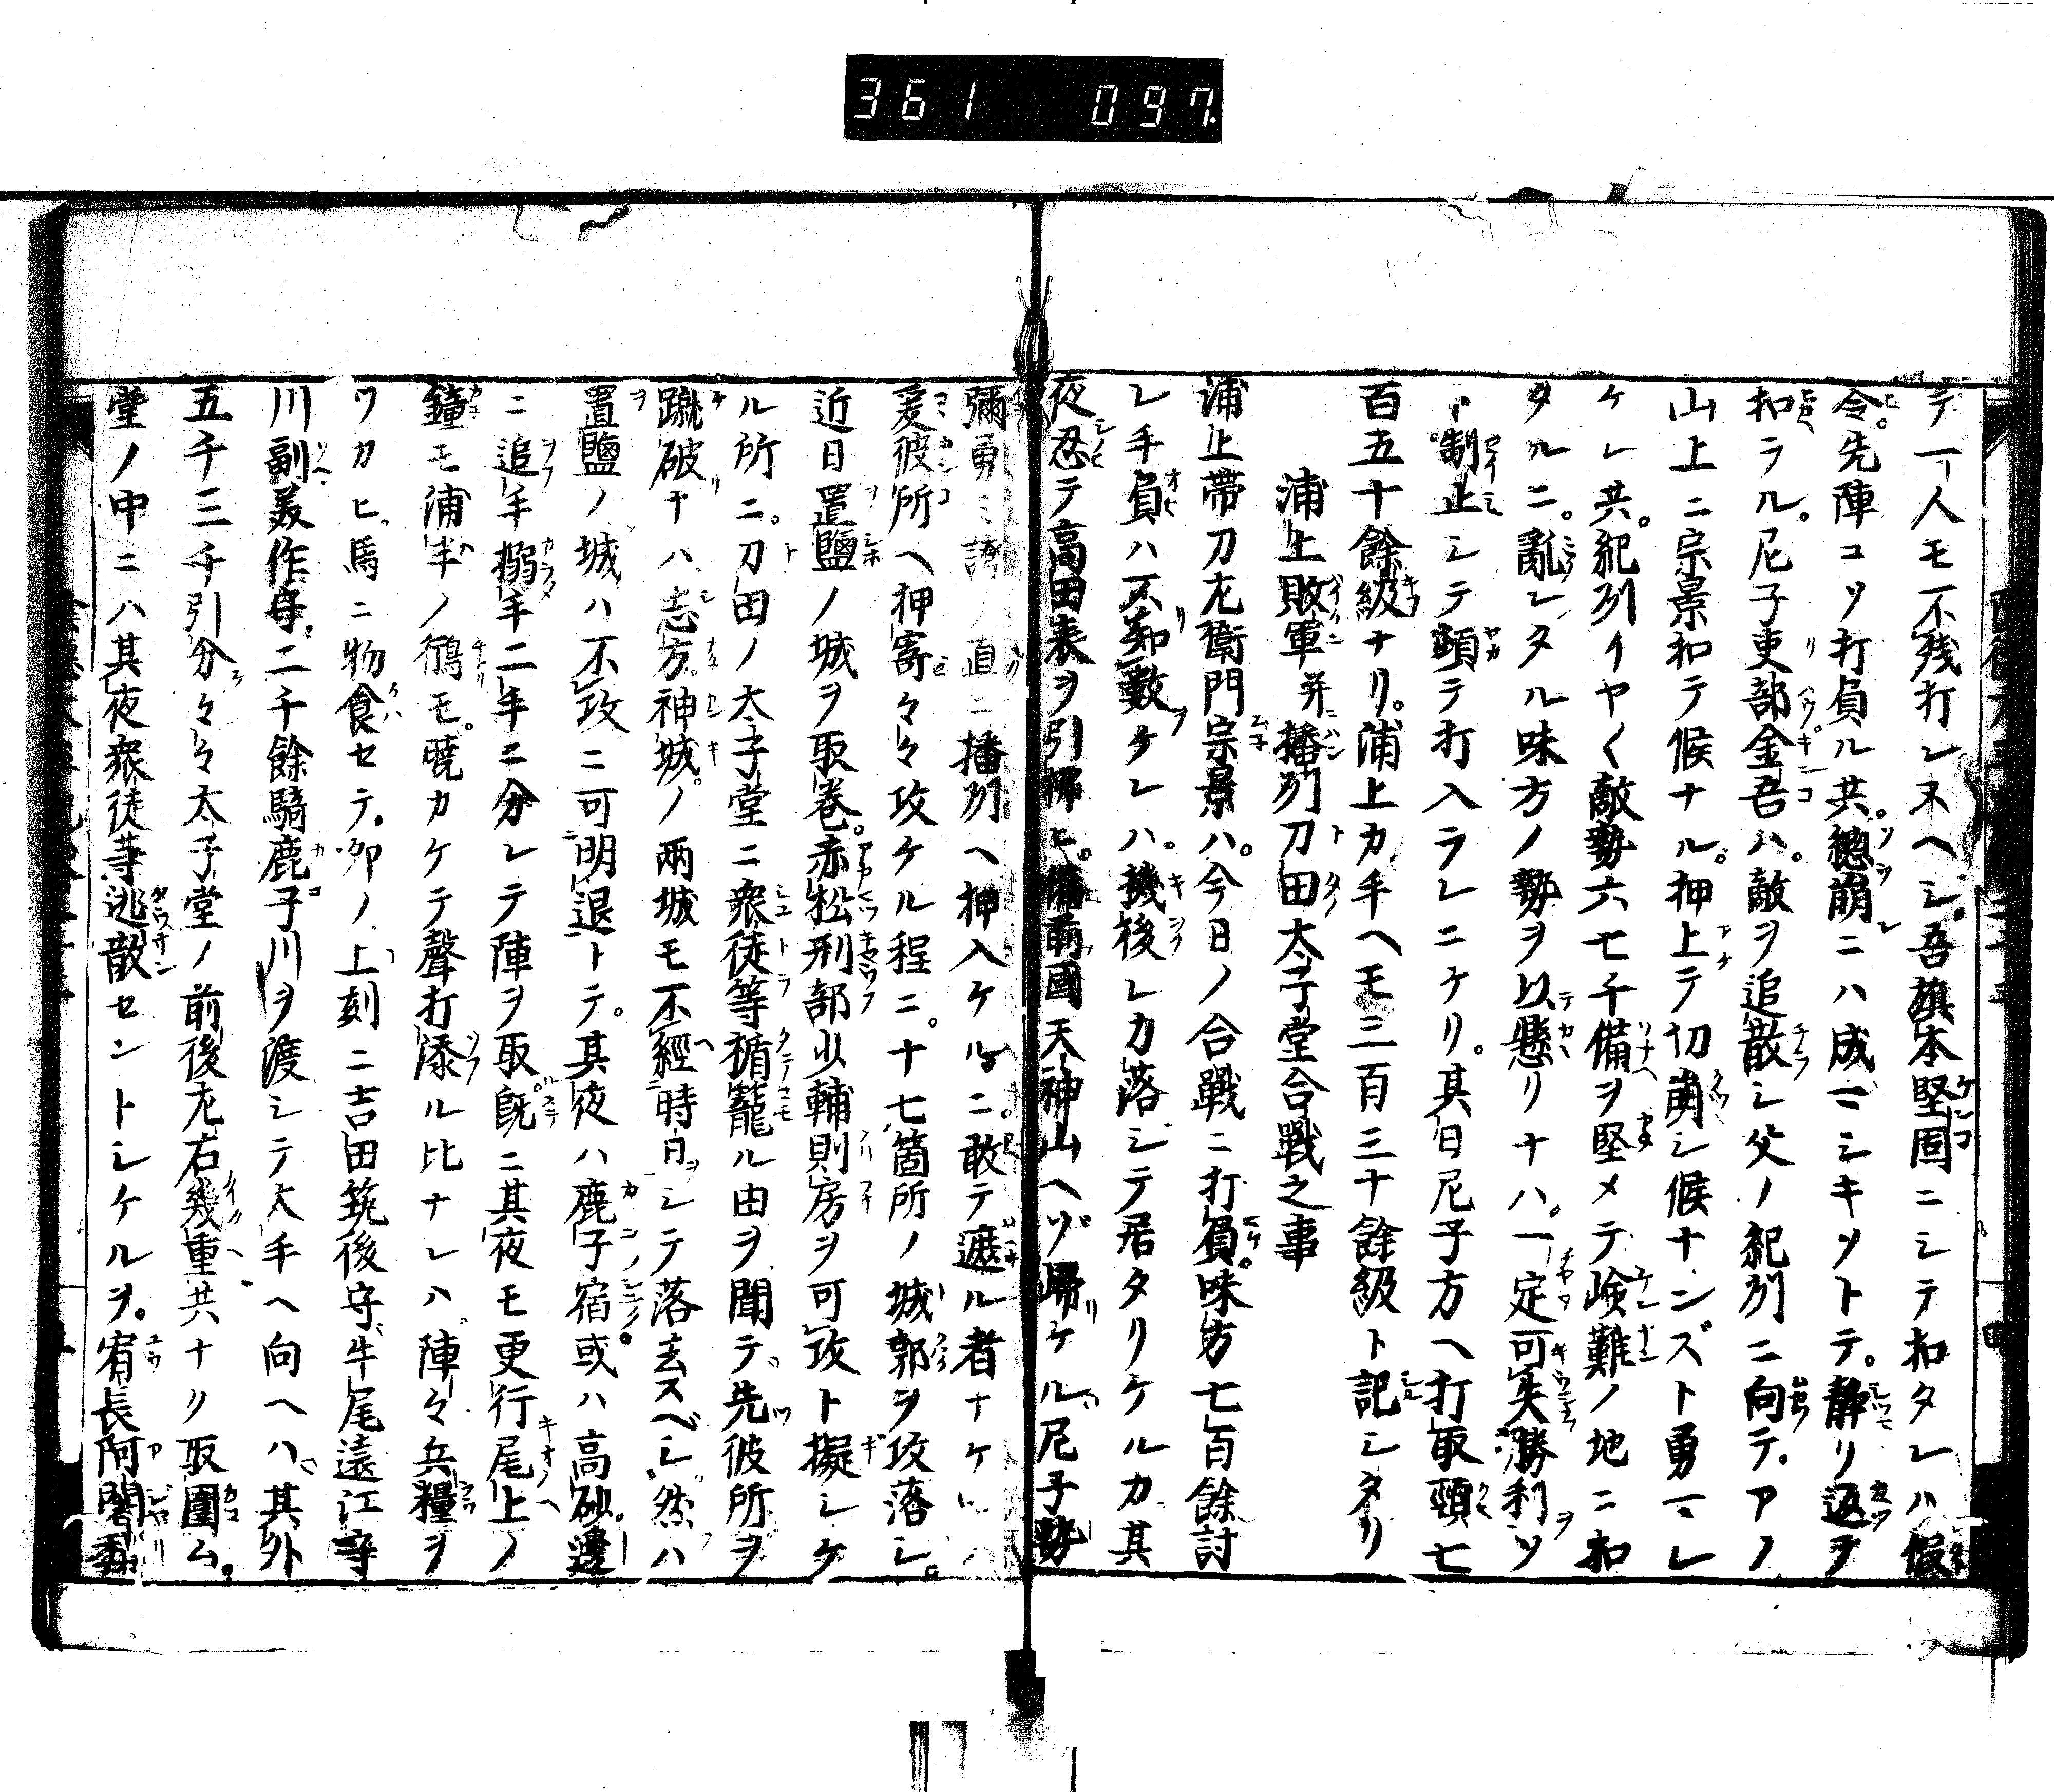 361 097
テ一人モ不残打レヌヘシ吾旗本堅固ニシテ扣タレハ假
令先陣コソ打負ル共總崩ニハ成マシキソトテ静リ返ヲ
扣ラル尼子吏部金吾ハ敵ヲ追散シ父ノ紀刕ニ向テアノ
山上ニ宗景扣テ候ナル押上テ切崩シ候ナンズト勇マレ
ケレ共紀刕イヤ〱敵勢六七千備ヲ堅メテ嶮難ノ地ニ扣
タルニ亂レタル味方ノ勢ヲ以懸リナハ一定可失勝利ソ
ト制止シテ頓テ打入ラレニケリ其日尼子方ヘ打取頸七
百五十餘級ナリ浦上カ手ヘモ三百三十餘級ト記シタリ
浦上敗軍并播刕刀田太子堂合戰之事
浦上帶刀左衛門宗景ハ今日ノ合戰ニ打負味方七百餘討
レ手負ハ不知數ケレハ機後レカ落シテ居タリケルカ其
夜忍テ高田表ヲ引拂ヒ備前國天神山ヘゾ歸ケル尼子勢
彌勇ミ誇ノ直ニ播刕ヘ押入ケルニ敢テ遮ル者ナケレハ
爰彼所ヘ押寄々々攻ケル程ニ十七箇所ノ城郭ヲ攻落シ
近日置鹽ノ城ヲ取巻赤松刑部少輔則房ヲ可攻ト擬シケ
ル所ニ刀田ノ太子堂ニ衆徒等楯籠ル由ヲ聞テ先彼所ヲ
蹴破ナハ志方神城ノ兩城モ不經時日シテ落去スベシ然ハ
置鹽ノ城ハ不攻ニ可明退トテ其夜ハ鹿子宿或ハ高砂邊
ニ追手搦手二手ニ分レテ陣ヲ取既ニ其夜モ更行尾上ノ
鐘モ浦半ノ鵆モ暁カケテ聲打添ル比ナレハ陣々兵糧ヲ
ツカヒ馬ニ物食セテ卯ノ上刻ニ吉田筑後守牛尾遠江守
川副美作守二千餘騎鹿子川ヲ渡シテ大手ヘ向ヘハ其外
五千三千引分々々太子堂ノ前後左右幾重共ナク取圍ム
堂ノ中ニハ其夜衆徒等逃散セントシケルヲ宥長阿闍梨